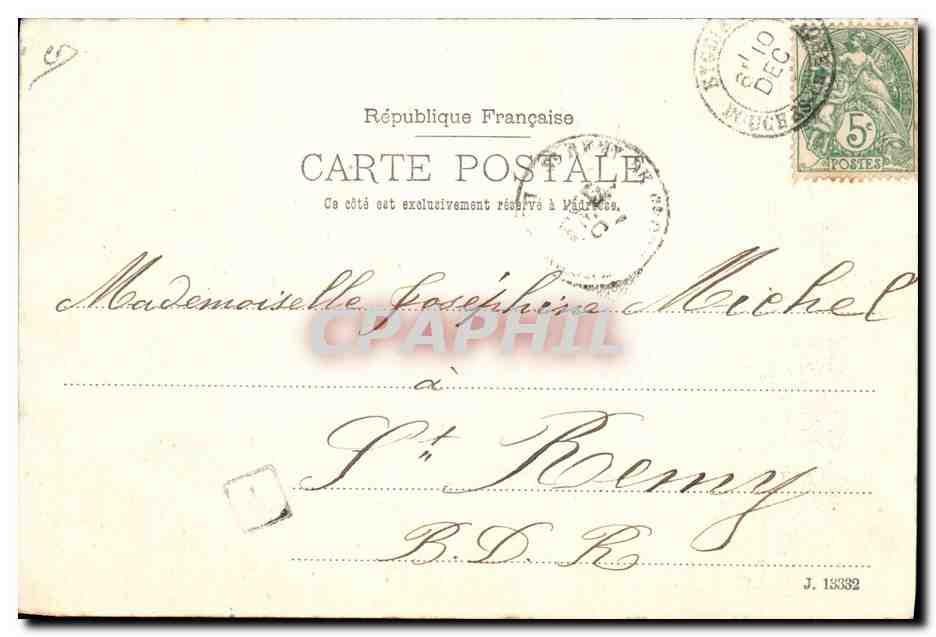 10
DEC
5c
POSTES
République Française
CARTE POSTALE
Ce côté est exclusivement réservé à l'adresse.
Mademoiselle Joséphine Michel
CPAPHIL
à
St Remy
B. D. R
J. 13332